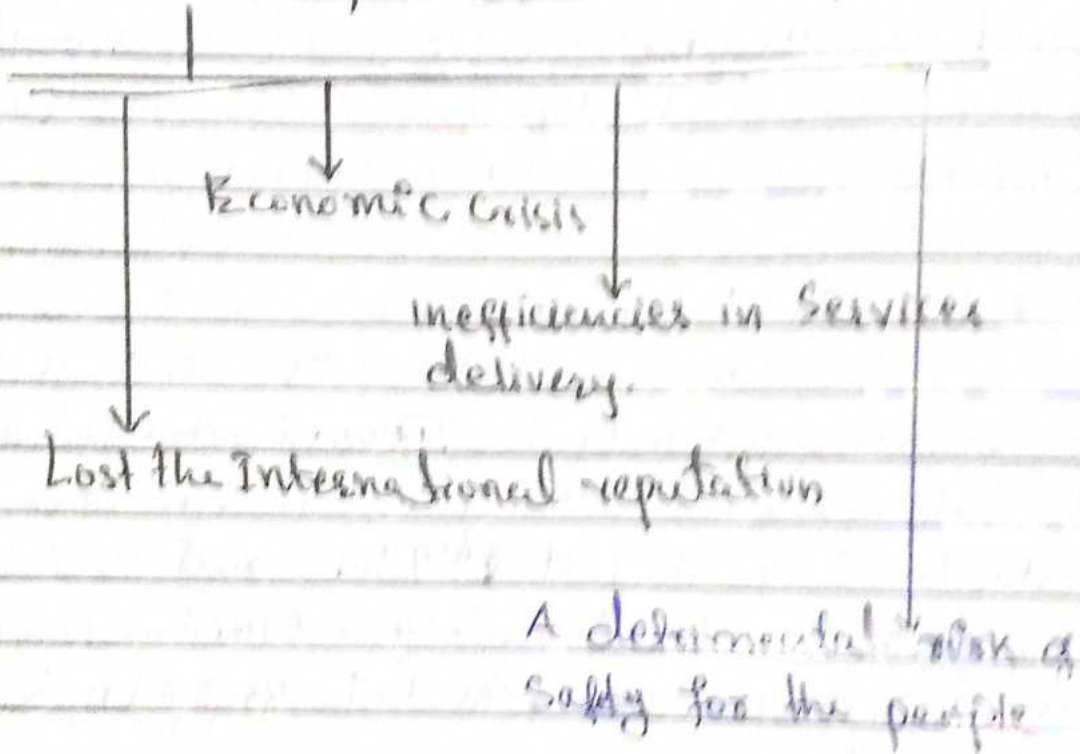 Economic Crisis
inefficiencies in Services
delivery.
Lost the International reputation
A detrimental risk of
Safty for the people